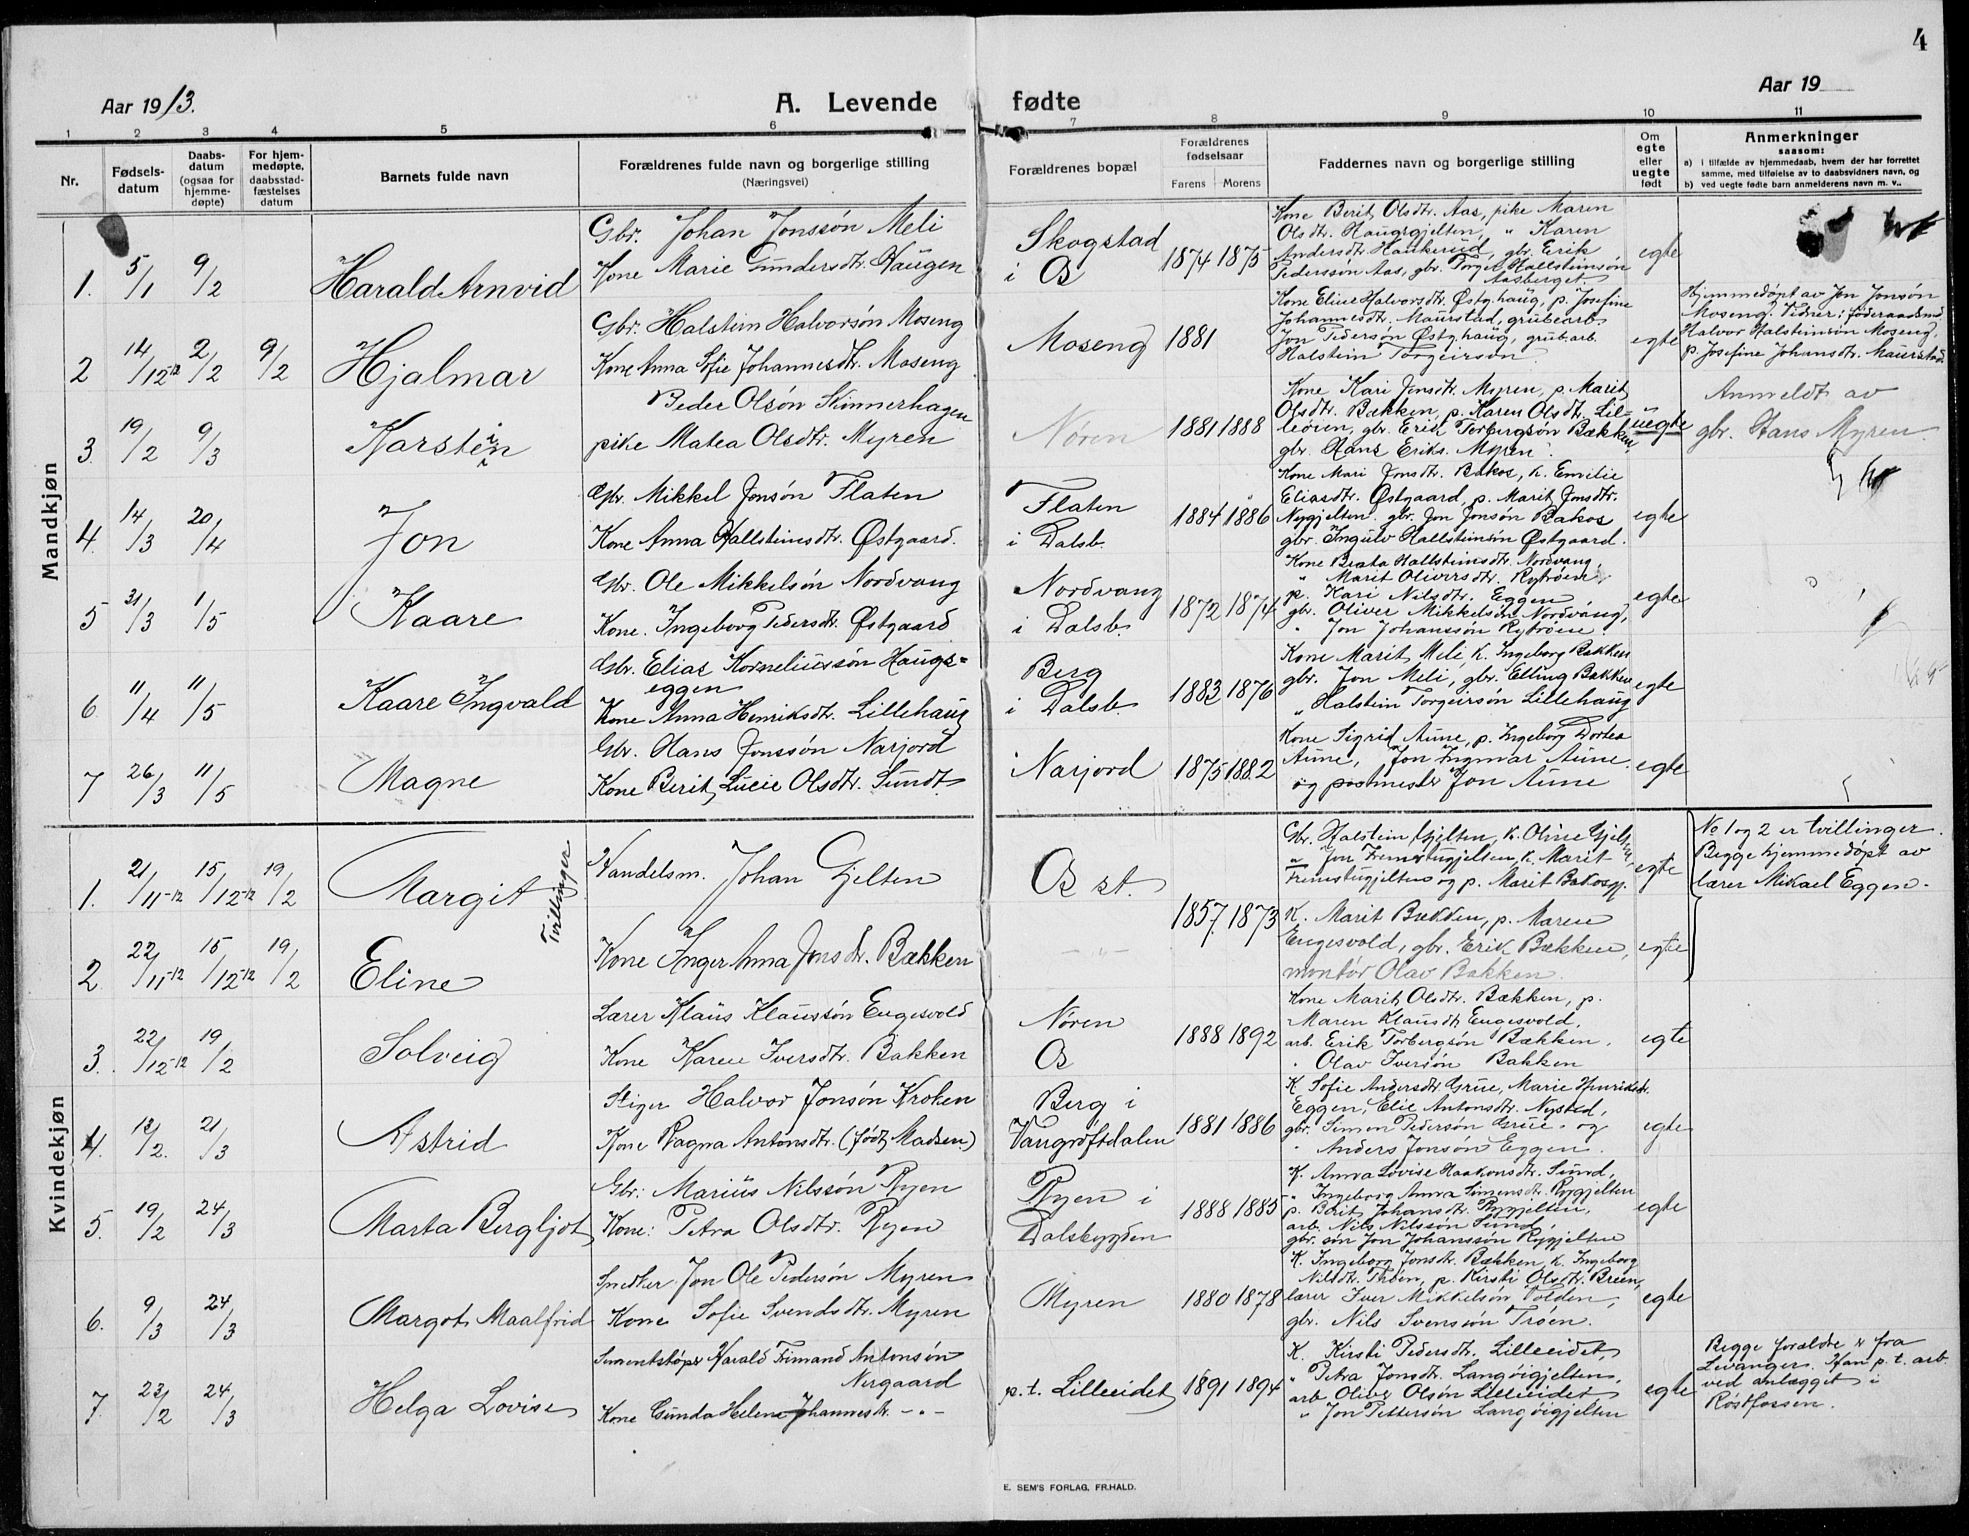 4
Aar 1913.
A. Levende fødte
Aar 19
1 2 3 4 5 6 7 8 9 10 11
Nr.
Fødsels-
datum
Daabs-
datum
(ogsaa for
hjemme-
døpte)
For hjem-
medøpte,
daabsstad-
fæstelses
datum
Barnets fulde navn
Forældrenes fulde navn og borgerlige stilling
(Næringsvei)
Forældrenes bopæl
Forældrenes
fødselsaar
Farens Morens
Faddernes navn og borgerlige stilling
Om
egte
eller
uegte
født
Anmerkninger
saasom:
a) i tilfælde av hjemmedaab, hvem der har forrettet
samme, med tilføielse av to daabsvidners navn, og
b) ved uegte fødte barn anmelderens navn m. v..
Mandkjøn
1. 5/1 9/2 Harald Arnvid
Gbr. Johan Jonssøn Meli
Kone Marie Gundersdtr. Haugen
Skogstad
i Os
1874 1875
Kone Berit Olsdtr. Aas, pike Maren
Olsdtr. Haugsgjelten, " Karen
Andersdtr. Haukerud, gbr. Erik
Pedersson Aas, gbr. Torgel Hallsteinsøn
Aasberget.
egte
2 14/12-12 2/2 9/2 Hjalmar
Gbr. Halstein Halvorsøn Moseng
Kone Anna Sofie Johannesdtr. Moseng
Moseng 1881
Kone Eline Halvorsdtr. Østg.haug, p. Josefine
Johannesdtr. Maurstad, grubearb.
Jon Pedersøn Østg.haug, grub.arb.
Halstein Torgeirsøn.
egte
Hjemmedøpt av Jon Jonsøn
Moseng. Vidner: føderaadsmd
Halvor Halsteinsøn Moseng,
p. Josefine Johansdtr. Maurstad.
3. 19/2 9/3 Karstein
Peder Olsøn Skinnerhagen
pike Matea Olsdtr. Myren
Nøren
1881 1888
Kone Kari Jonsdtr. Myren, p. Marit
Olsdtr. Bækken, p. Karen Olsdtr. Lil-
leøien, gbr. Erik Torbergsøn Bækken,
gbr. Hans Eriks. Myren.
uegte
Anmeldt av
gbr. Hans Myren.
4. 14/3 20/4 Jon
Gbr. Mikkel Jonsøn Flaten
Kone Anna Hallsteinsdtr. Østgaard.
Flaten
i Dalsb.
1884 1886
Kone Mari Jonsdtr. Bakos, k. Emilie
Eliasdtr. Østgaard, p. Marit Jonsdtr.
Nygjelten. gbr. Jon Jonsøn Bakos
gbr. Ingulv Hallsteinsøn Østgaard.
egte
5 31/3 1/5 Kaare
Gbr. Ole Mikkelsøn Nordvang
Kone. Ingeborg Pedersdtr. Østgaard
Nordvang
i Dalsb.
1872 1874
Kone Beata Hallsteinsdtr. Nordvang,
" Marit Oliversdtr. Rytrøen
p. Kari Nilsdtr. Eggen
gbr. Oliver Mikkelsøn Nordvang,
" Jon Johanssøn Rytrøen.
egte
6 11/4 11/5 Kaare Ingvald
Gbr. Elias Korneliussøn Haugs=
eggen
Kone Anna Henriksdtr. Lillehaug
Berg
i Dalsb.
1883 1876
Kone Marit Meli, k. Ingeborg Bækken
gbr. Jon Meli, gbr. Elling Bækken
" Halstein Torgeirsøn Lillehaug
egte
7 26/3 11/5 Magne
Gbr. Hans Jonssøn Narjord
Kone Berit Lucie Olsdtr. Sundt
Narjord
1875 1882
Kone Sigrid Aune, p. Ingeborg Dortea
Aune, Jon Ingmar Aune.
og postmester Jon Aune
egte
Kvindekjøn
1. 21/11-12 15/12-12 19/2 Margit
Tvillinger
Handelsm. Johan Gjelten
Os st.
Gbr. Halstein Gjelten, k. Oline Gjelten,
" Jon Fremstugjelten, k. Marit
Fremstugjelten og p. Marit Bakosgj.
egte
No 1 og 2 er tvillinger.
Begge hjemmedøpt av
lærer Mikael Eggen.
2 22/11-12 15/12-12 19/2 Eline
Kone Inger Anna Jonsdtr. Bækken
1857. 1873
K. Marit Bækken, p. Maren
Engesvold, gbr. Erik Bækken,
montør Olav Bakken.
egte
3. 22/12-12 19/2 Solveig
Lærer Klaus Klaussøn Engesvold
Kone Karen Iversdtr. Bakken
Nøren
Os
1888 1892
Kone Marit Olsdtr. Bækken, p.
Maren Klausdtr. Engesvold,
arb. Erik Torbergsøn Bækken.
" Olav Iversøn Bakken
egte
4. 12/2. 21/3 Astrid
Stiger Halvor Jonsøn Kroken
Kone Ragna Antonsdtr. (født Madsen)
Berg i
Vangrøftdalen
1881 1886
K. Sofie Andersdtr. Grue, Marie Henriksdtr.
Eggen, Elie Antonsdtr. Nysted,
gbr. Simon Pedersøn Grue. og
" Anders Jonsøn Eggen.
egte
5. 19/2 24/3 Marta Bergljot
Gbr: Marius Nilssøn Ryen
Kone: Petra Olsdtr. Ryen
Ryen i
Dalsbygden
1888 1885
K. Anna Lovise Haakonsdtr. Sund,
" Ingeborg Anna Simensdtr. Rygjelten
p. Berit Johansdtr. Rygjelten,
arb. Nils Nilssøn Sund,
gbr. søn Jon Johanssøn Rygjelten
egte
6. 9/3 24/3 Margot Maalfrid
Snedker Jon Ole Pedersøn Myren
Kone Sofie Svendsdtr. Myren
Myren
1880 1878
K. Ingeborg Jonsdtr. Bækken, k. Ingeborg
Nilsdtr. Trøen, p. Kirsti Olsdtr. Breen,
lærer Iver Mikkelsøn Volden,
gbr. Nils Svensøn Trøen.
egte
7 23/2 24/3 Helga Lovise
Sementstøper Harald Frimand Antonsøn
Nergaard
Kone Gunda Helene Johannesdtr. - " -
p.t. Lilleeidet
1891 1894
K. Kirsti Pedersdtr. Lilleeidet,
" Petra Jonsdtr. Langøigjelten,
arb. Oliver Olsøn Lilleeidet
" Jon Pettersøn Langøigjelten
egte
Begge forældre er fra
Levanger. Han p. t. arb.
ved anlægget i
Røstfossen.
E. SEM'S FORLAG, FR.HALD.